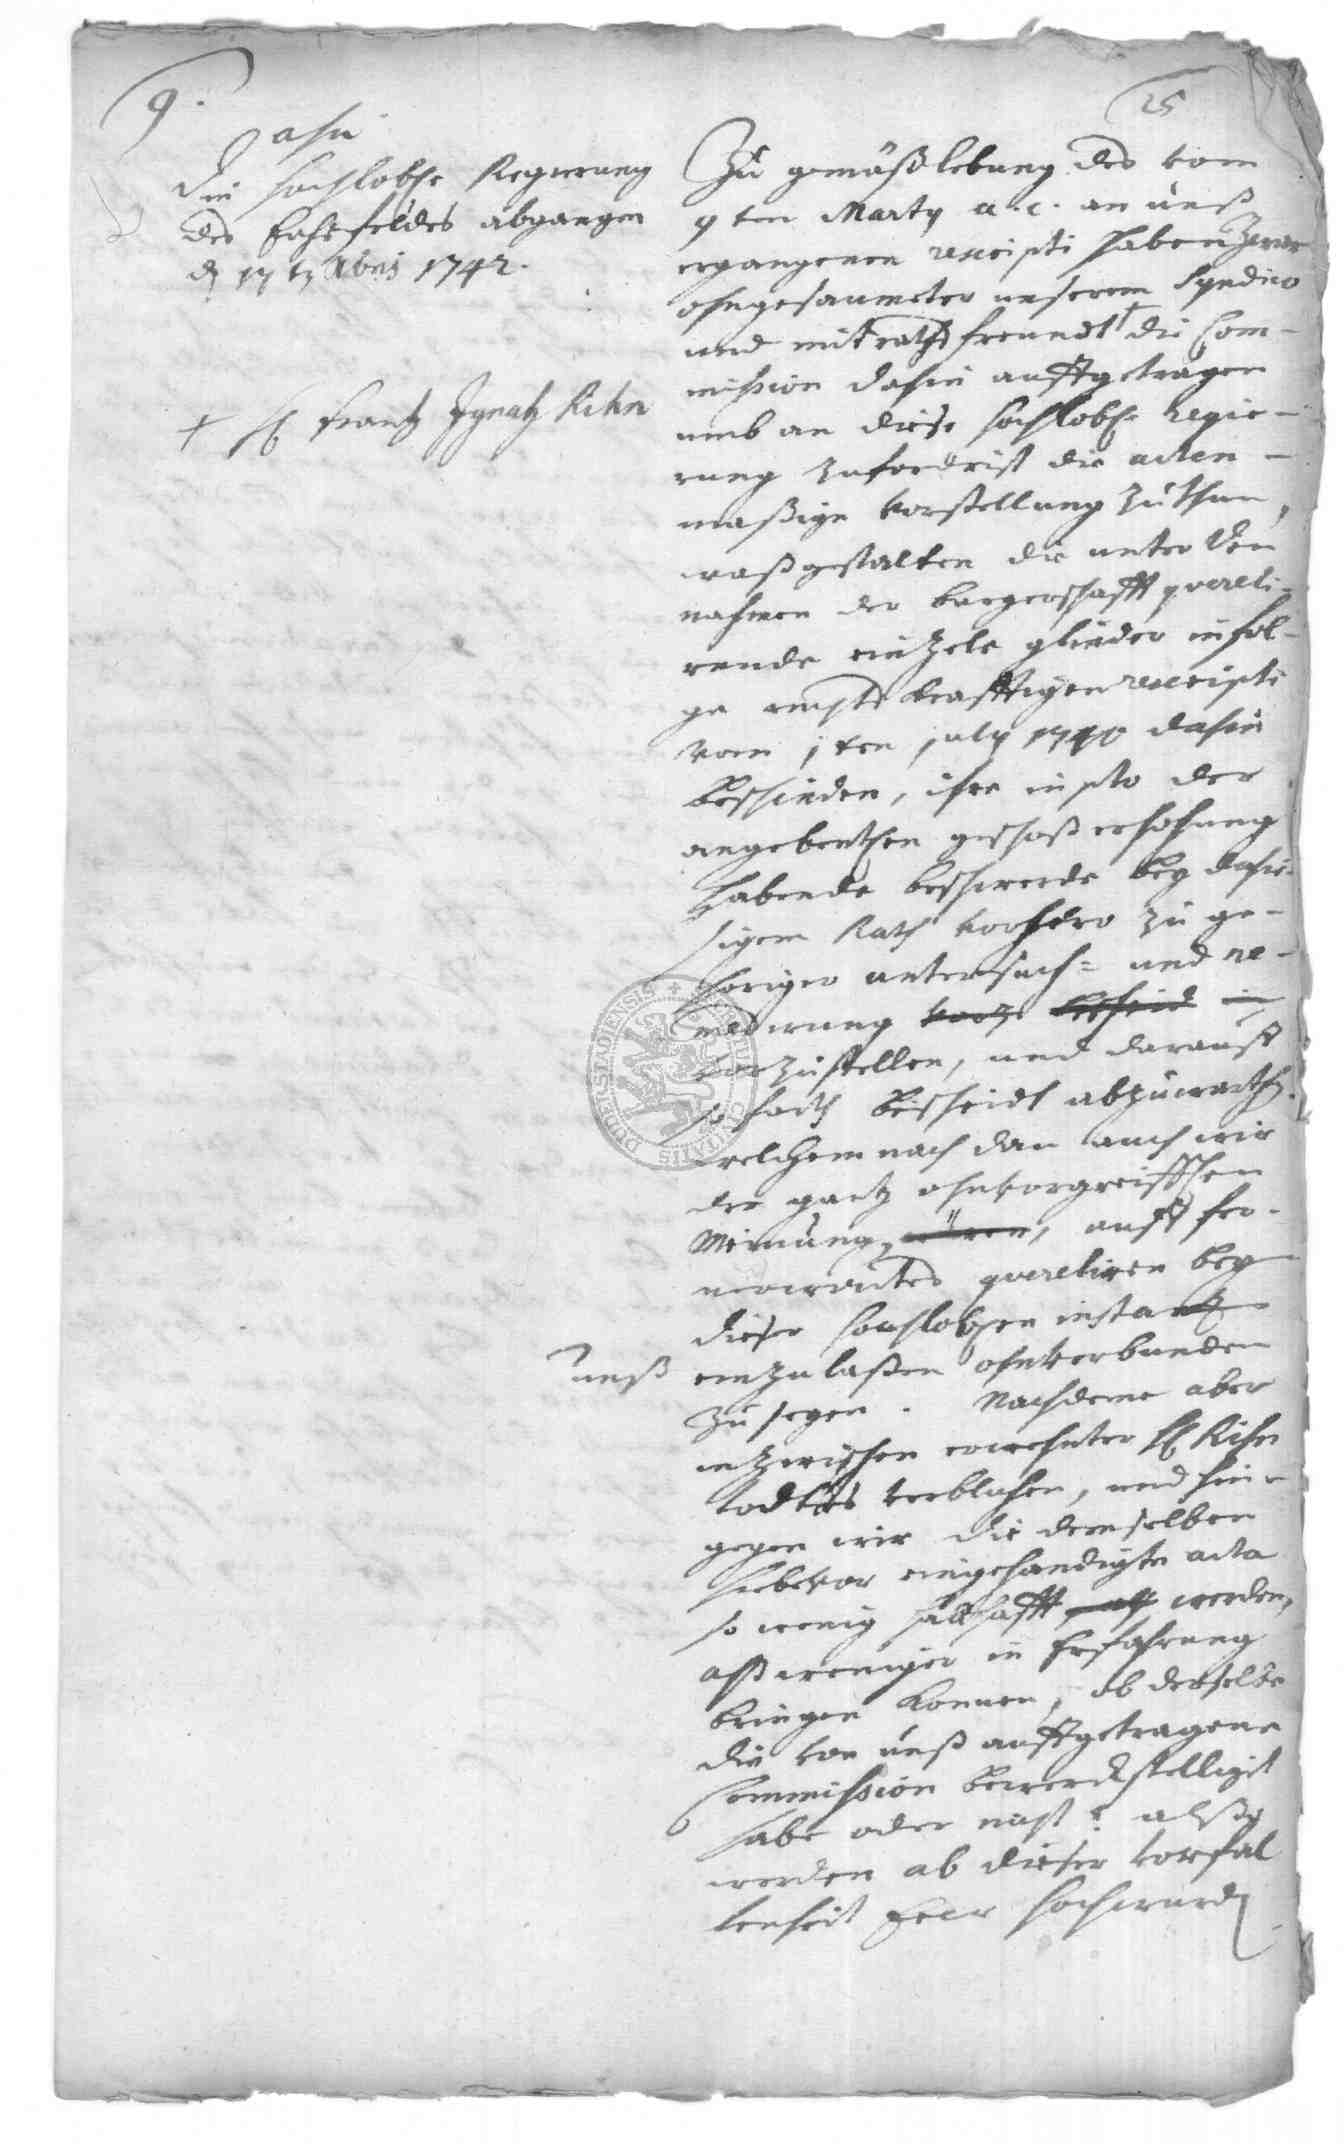 9.
25
ahn
die hochlobl. Regierung
des Eichsfeldes abgangen
d 17 t Xbris 1742.
+ H Frantz Ignatz Kihn
Zu gemäßlebung des vom
9ten Marty a. c. an unß
ergangenen rescripti haben zwar
ohngesaumeter unserem Syndico
und mitrathsfreundt + die Com-
mission dahin auffgetragen
umb an diese hochlobl. Regie-
rung zuforderist die acten-
maßige vorstellung zu thun,
waßgestalten die unter dem
nahmen der burgerschafft quereli-
rende eintzele glieder infol-
ge rechts krafftigen rescripti
vom 1ten july 1740 dahin
beschieden, ihre in pto der
angebenthen geschoß erhohung
habende beschwerde bey dahie-
sigem Rath vorhero zu ge-
horiger untersuch- und re-
medirung
vorzustellen, und darauff
so forth bescheidt abzuwarthen.
welchem nach dan auch wir
der gantz ohnvorgreifflichen
Meinung, auff fer-
nerweites quereliren bey
dieser hochloblichen instantz
unß
einzulaßen ohnverbunden
zu seyen. Nachdeme aber
inzwischen erwehnter H Kihn
todtes verblichen, und hin-
gegen wir die demselben
hiebevor eingehandigte acta
so wenig habhafft werden,
alß weniger in Erfahrung
bringen konnen, ob derselbe
die von unß auffgetragene
Commission bewerckstelliget
habe oder nicht? alß
werden ab dieser vorfal
lenheit Ewer hochwurd
DUDERSTADIENSIS CIVITATIS